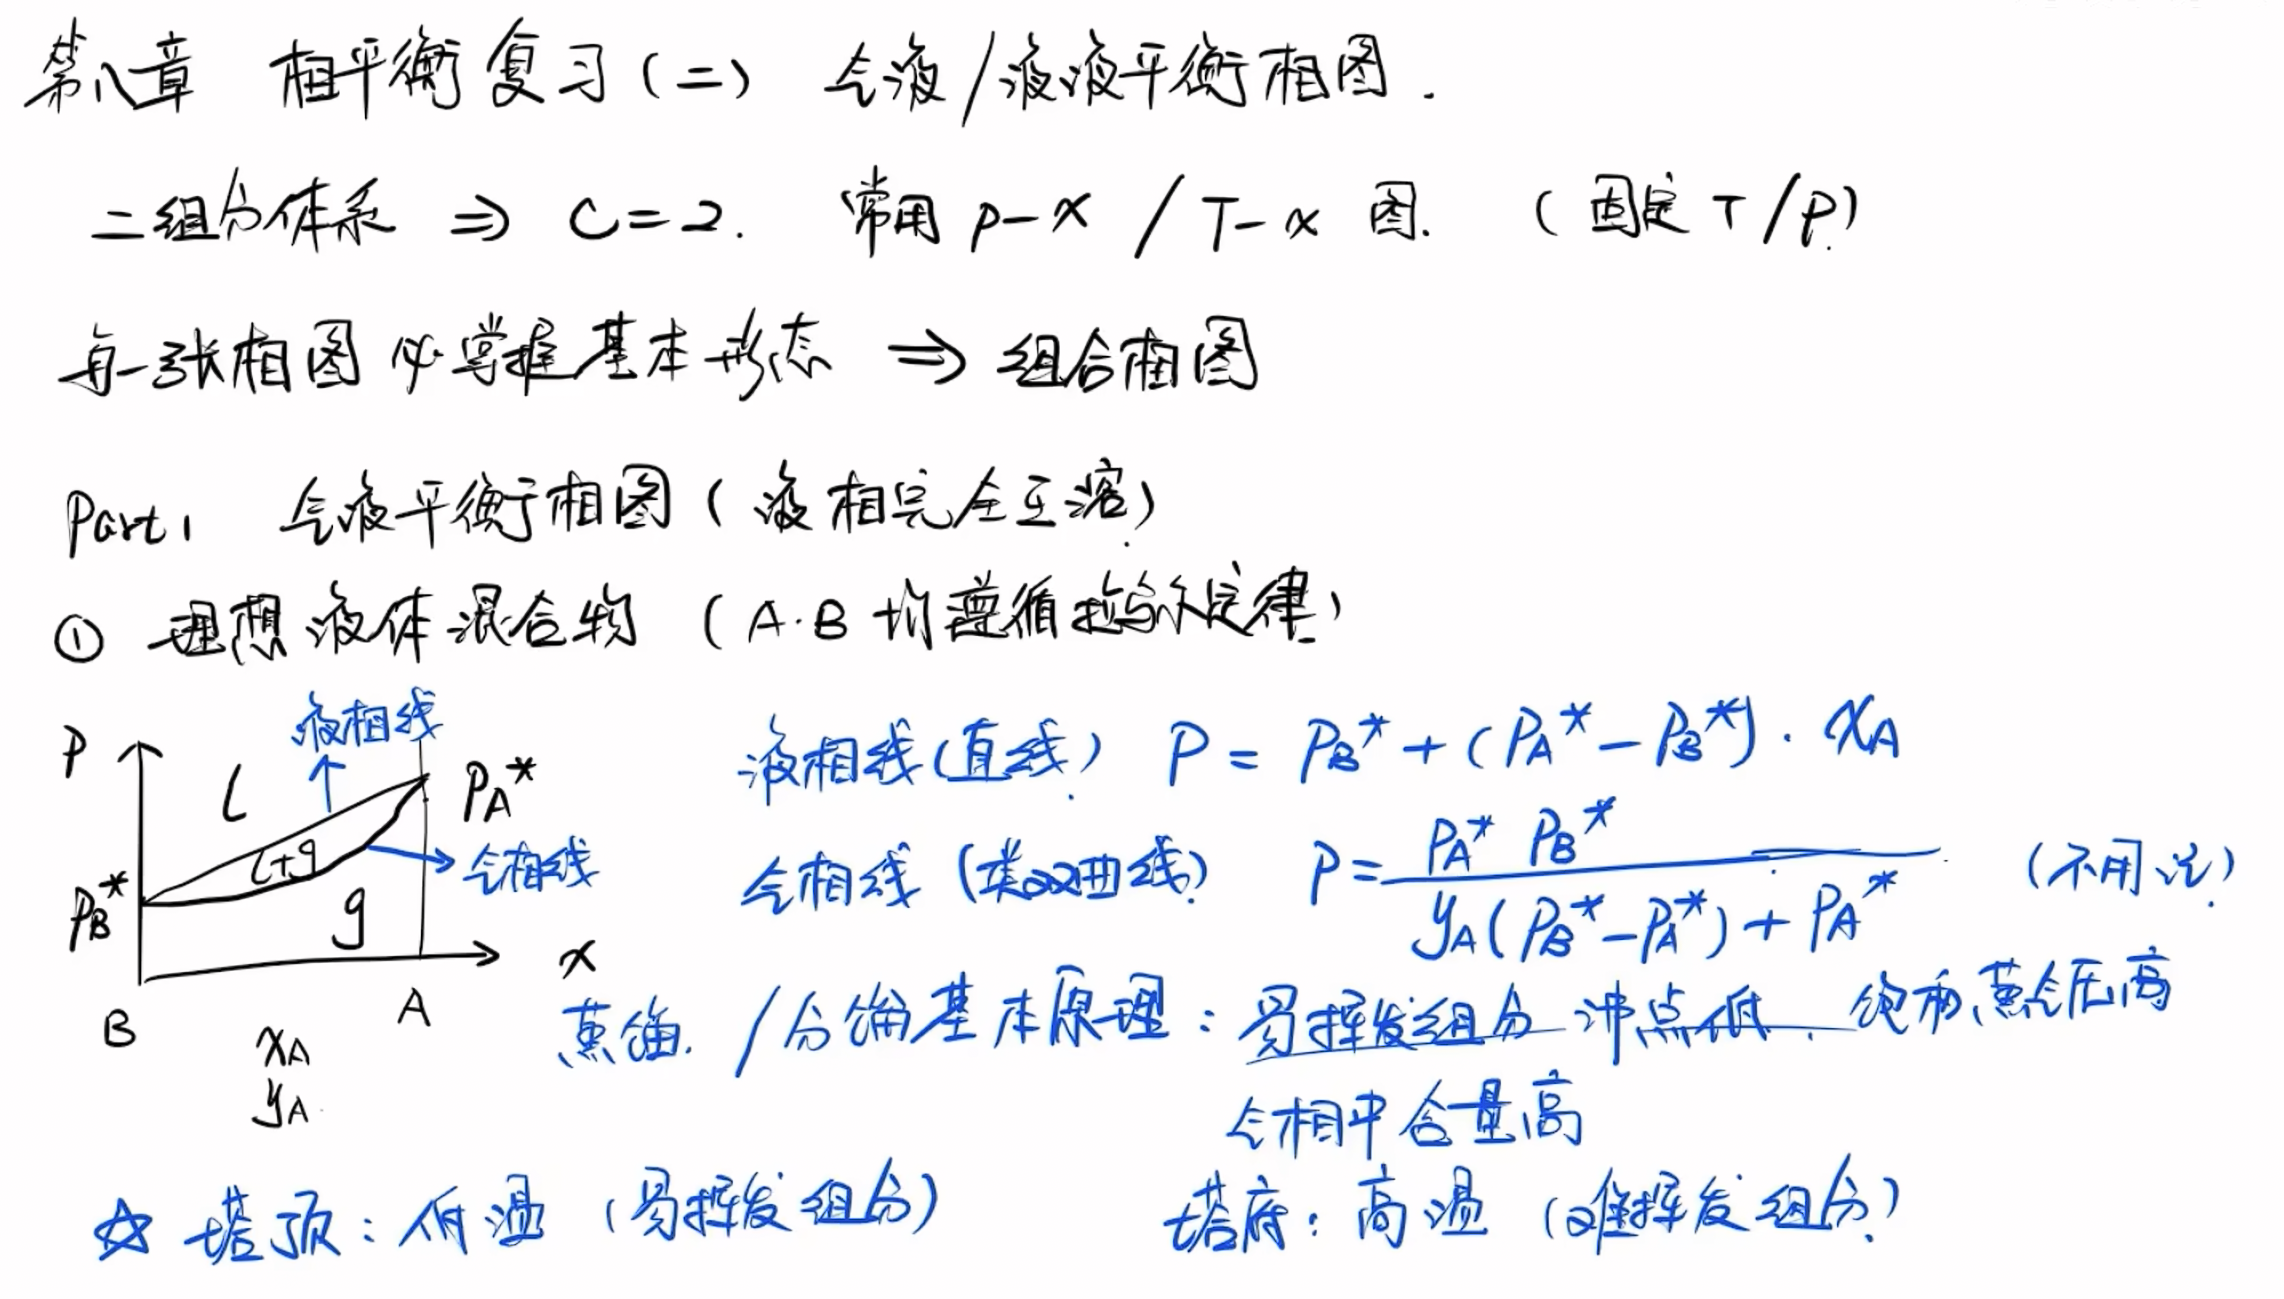 第八章 相平衡复习(二) 气液/液液平衡相图.
二组分体系 ⇒ C=2. 常用 p-x / T-x 图. (固定 T/P)
每一张相图 必掌握基本形态 ⇒ 组合相图
Part1 气液平衡相图 (液相完全互溶)
① 理想液体混合物 (A.B 均遵循拉乌尔定律)
P
液相线
l
PA*
l+g
气相线
PB*
g
x
B
A
xA
yA
液相线(直线) P = PB* + (PA* - PB*) · xA
气相线 (类双曲线) P = PA* PB* / yA(PB* - PA*) + PA* (不用记)
蒸馏 / 分馏基本原理: 易挥发组分 沸点低. 饱和蒸气压高
气相中含量高
☆ 塔顶: 低温 (易挥发组分) 塔底: 高温 (难挥发组分)